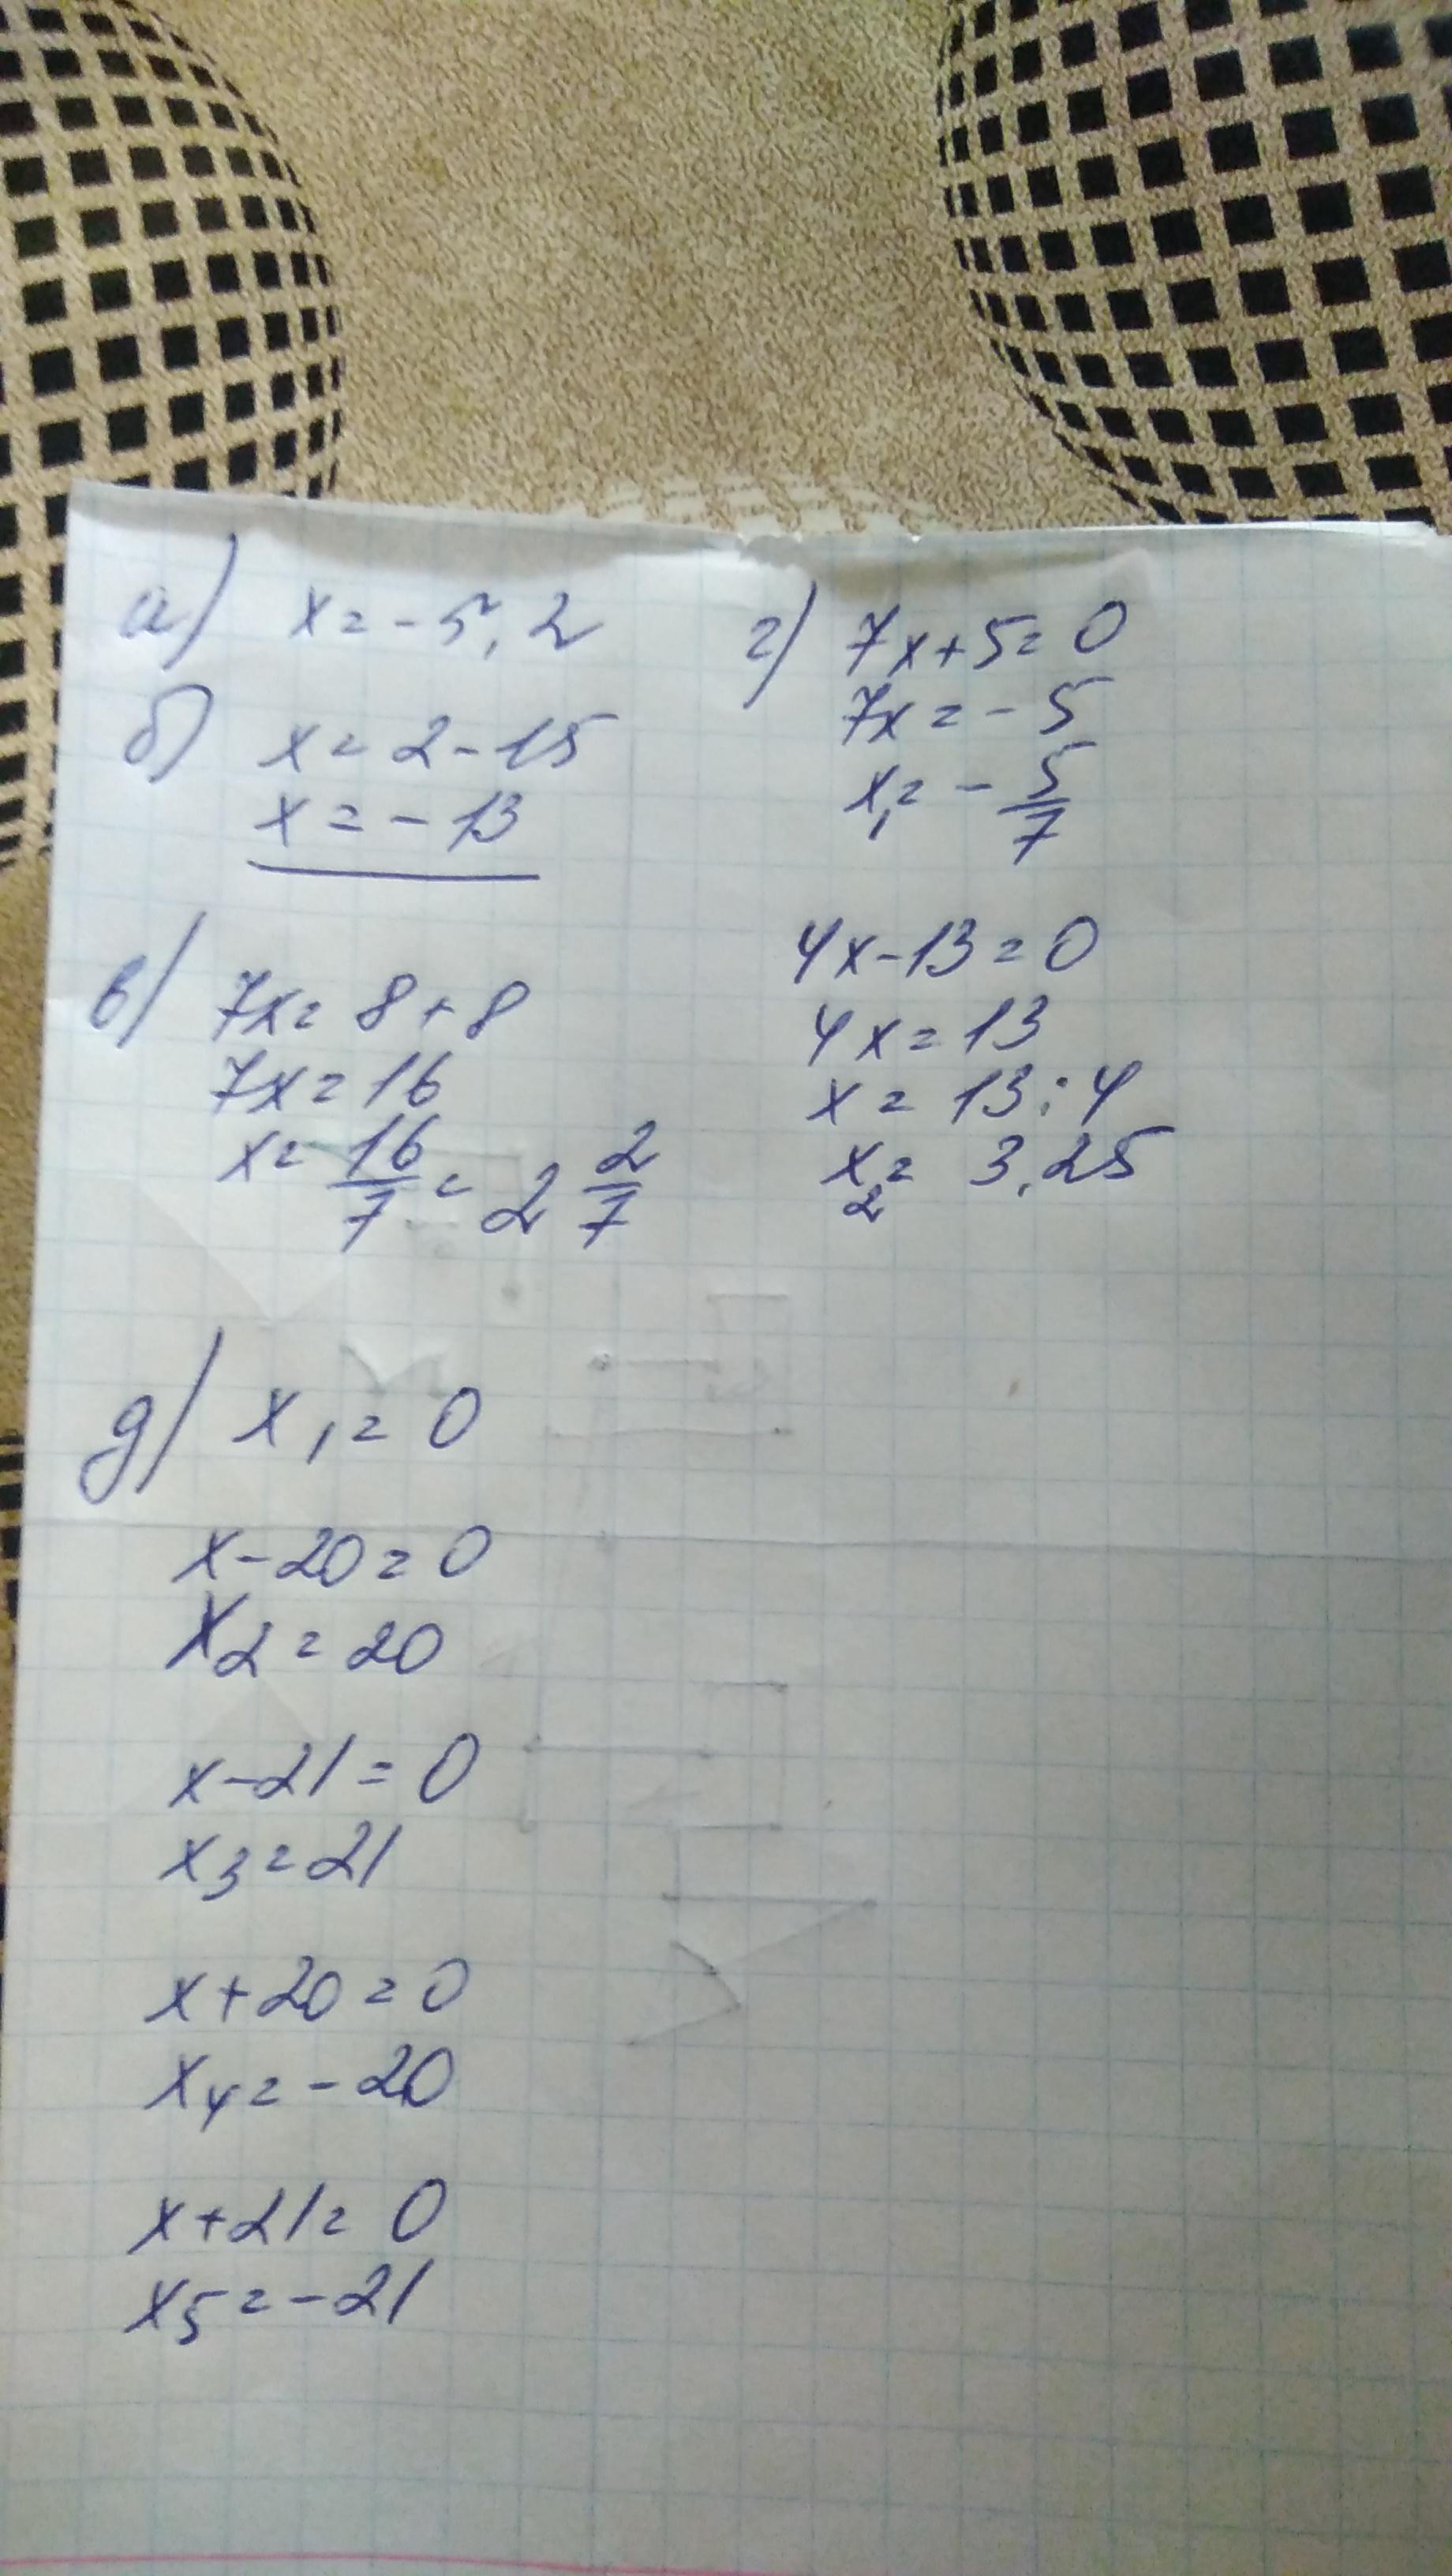 а) x = -5,2
б) x = 2 - 15
x = -13
в) 7x = 8 + 8
7x = 16
x = 16/7 = 2 2/7
г) 7x + 5 = 0
7x = -5
x₁ = -5/7
4x - 13 = 0
4x = 13
x = 13 : 4
x₂ = 3,25
д) x₁ = 0
x - 20 = 0
x₂ = 20
x - 21 = 0
x₃ = 21
x + 20 = 0
x₄ = -20
x + 21 = 0
x₅ = -21